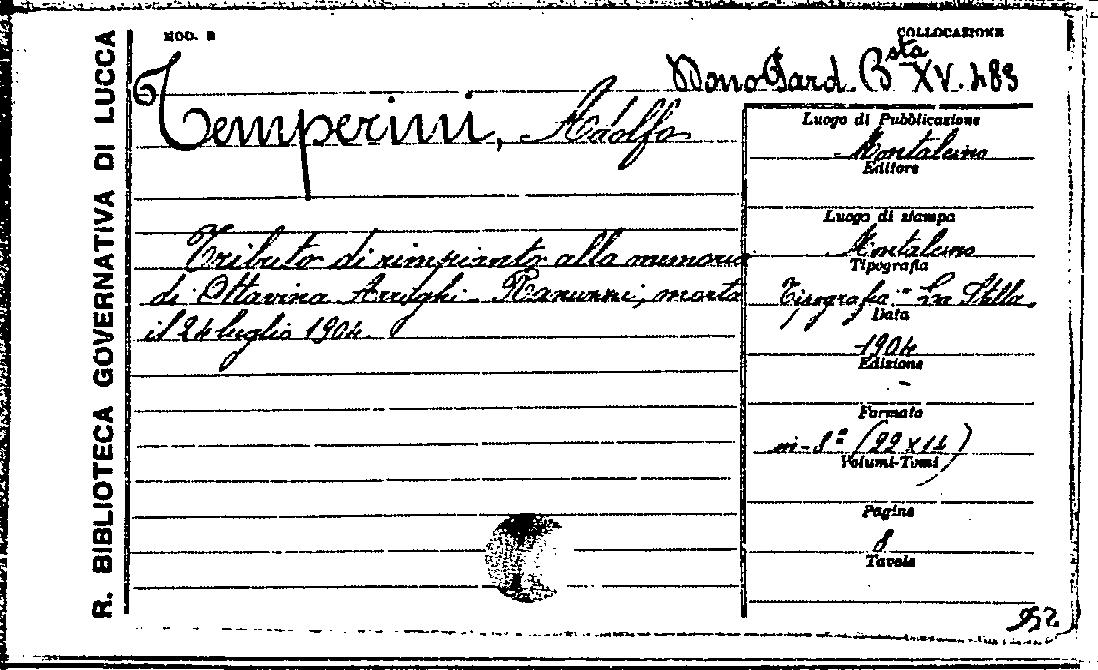 R. BIBLIOTECA GOVERNATIVA DI LUCCA
MOD. B
COLLOCAZIONE
Dono Pard. Bsta XV. 483
Temperini, Adolfo
Tributo di rimpianto alla memoria
di Ottavina Arrighi-Ranuzzi, morta
il 24 luglio 1904.
Luogo di Pubblicazione
Montalcino
Editore
Luogo di stampa
Montalcino
Tipografia
Tipografia "La Stella"
Data
1904
Edizione
-
Formato
in-8° (22x14)
Volumi-Tomi
Pagine
8
Tavole
952